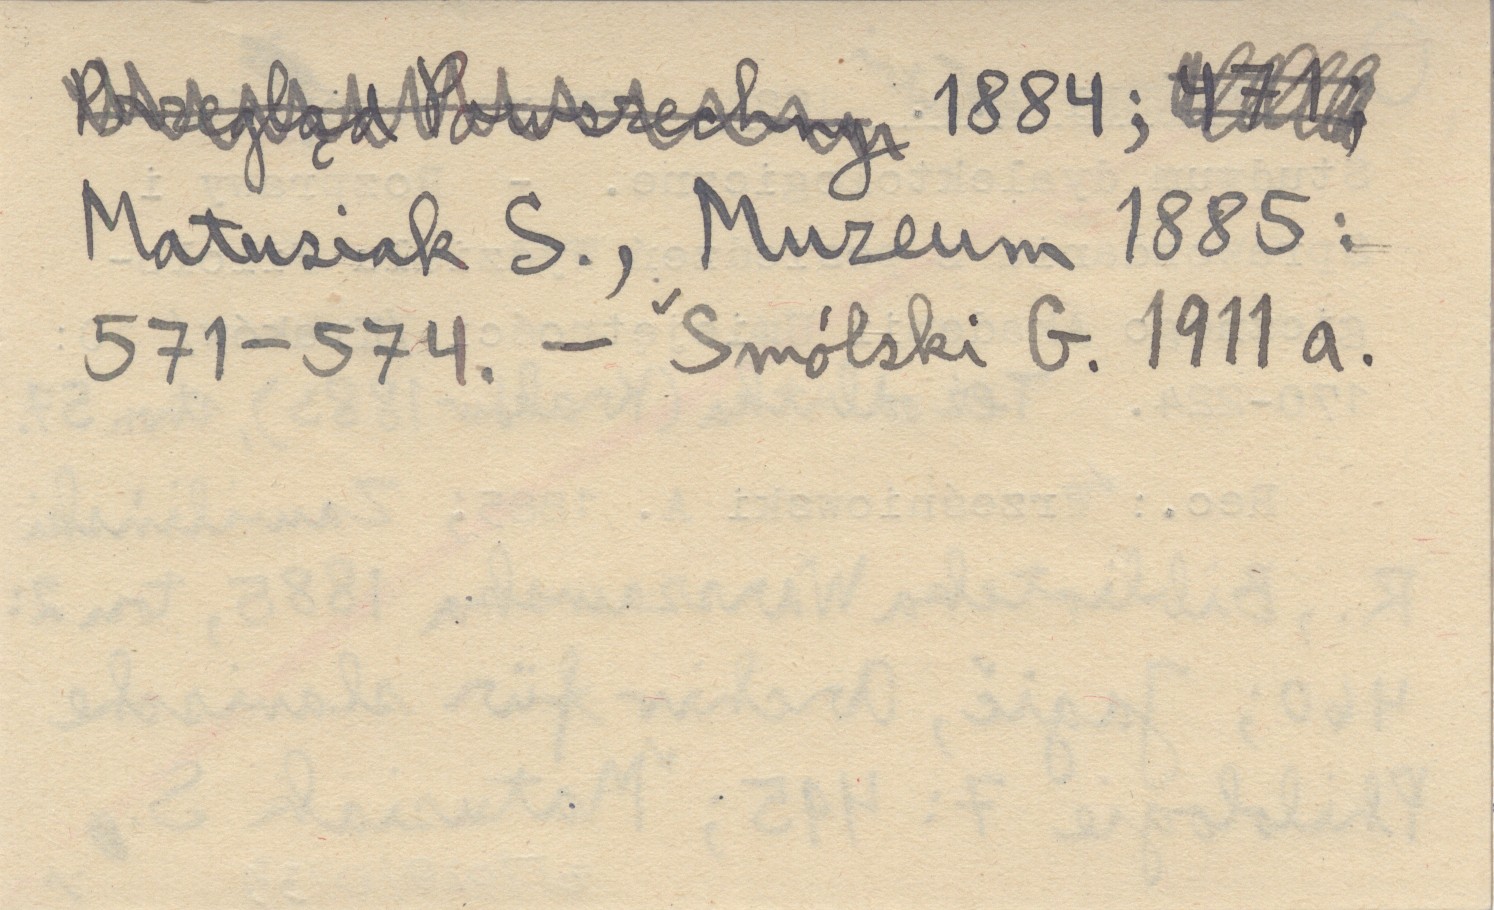 Przegląd Powszechny, 1884; 471;
Matusiak S., Muzeum 1885:
571-574. – Smólski G. 1911 a.